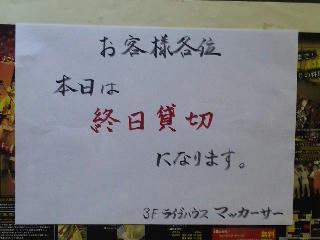 お客様各位
本日は
終日貸切
になります。
3F ライブハウス マッカーサー